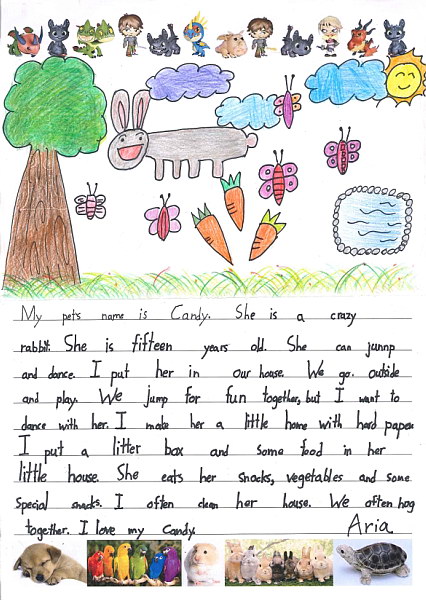 My pets name is Candy. She is a crazy
rabbit. She is fifteen years old. She can jump
and dance. I put her in our house. We go outside
and play. We jump for fun together, but I want to
dance with her. I make her a little home with hard paper.
I put a litter box and some food in her
little house. She eats her snacks, vegetables and some
special snacks. I often clean her house. We often hog
together. I love my Candy. Aria